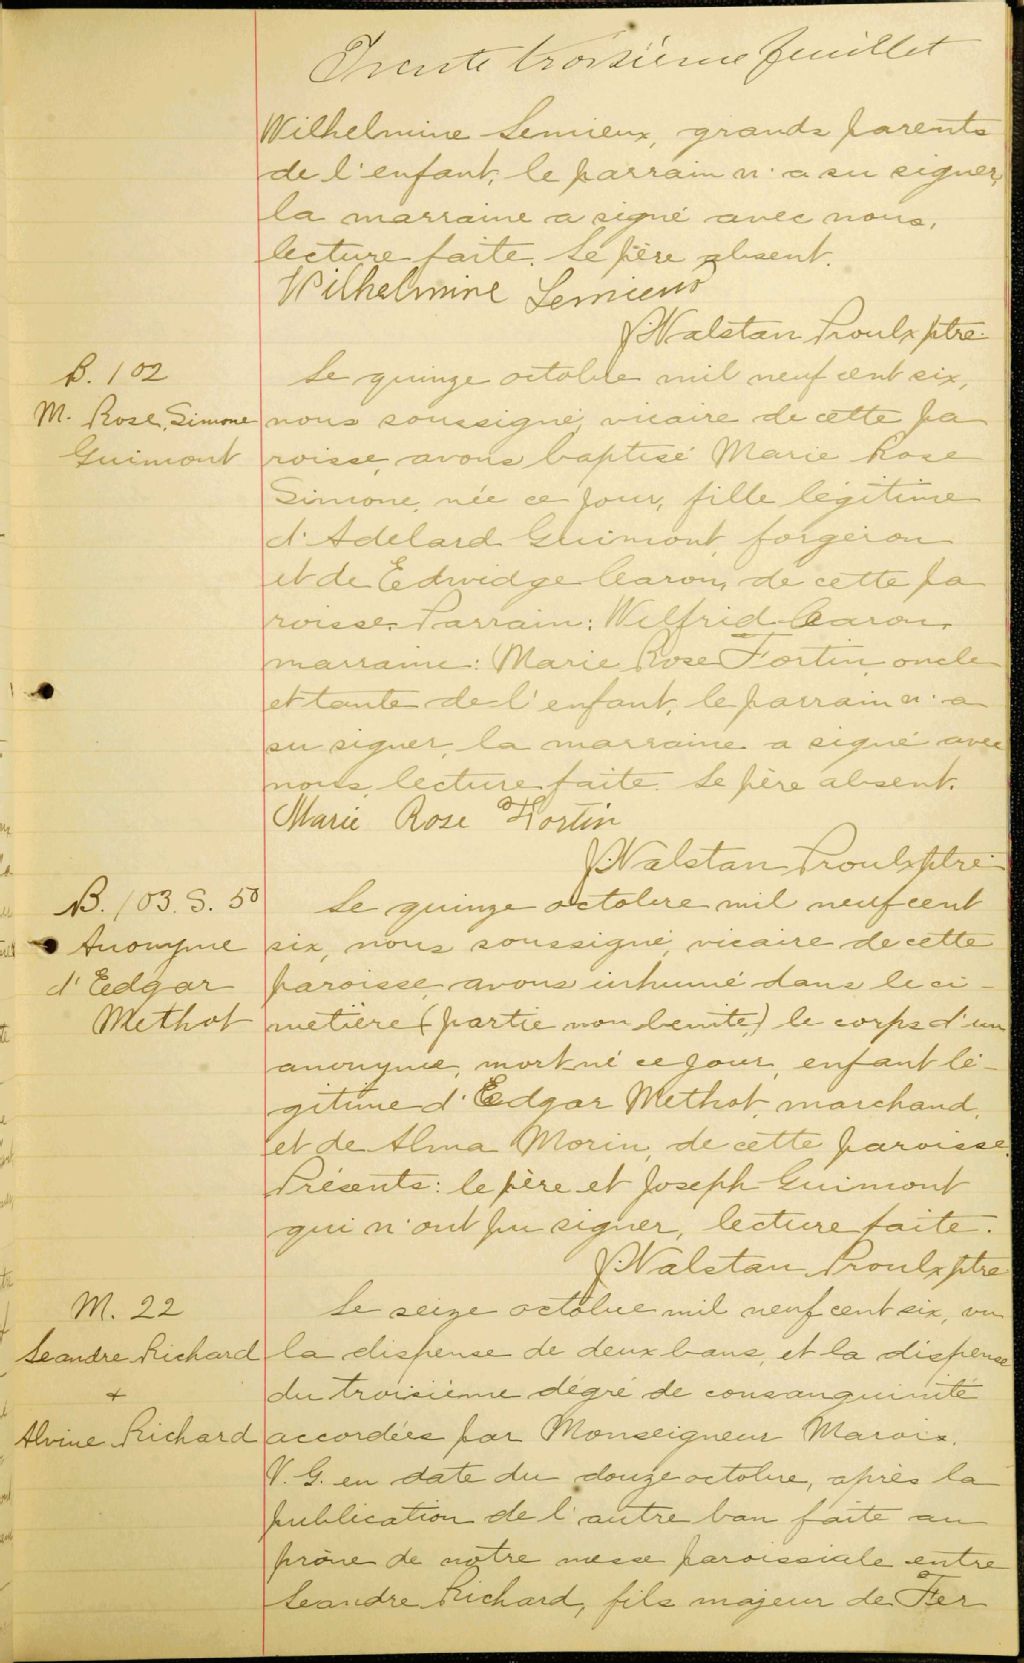 Trente troisième feuillet
Wilhelmine Lemieux, grands parents
de l'enfant, le parrain n'a su signer,
la marraine a signé avec nous,
lecture faite. Le père absent.
Wilhelmine Lemieux
J. Walstan Proulx ptre.
B. 102
M. Rose, Simone
Guimont
Le quinze octobre mil neuf cent six,
nous soussigné, vicaire de cette pa
roisse, avons baptisé Marie Rose
Simone, née ce jour, fille légitime
d'Adelard Guimont, forgeron
et de Edwidge Caron, de cette pa
roisse. Parrain: Wilfrid Caron,
marraine: Marie Rose Fortin, oncle
et tante de l'enfant, le parrain n'a
su signer, la marraine a signé avec
nous, lecture faite. Le père absent.
Marie Rose Fortin
J. Walstan Proulx ptre.
B. 103. S. 50
Anonyme
d'Edgar
Methot
Le quinze octobre mil neuf cent
six, nous soussigné, vicaire de cette
paroisse, avons inhumé dans le ci-
metière (partie non benite) le corps d'un
anonyme, mort né ce jour, enfant lé-
gitime d'Edgar Methot, marchand,
et de Alma Morin, de cette paroisse.
Présents: le père et Joseph Guimont
qui n'ont pu signer, lecture faite.
J. Walstan Proulx ptre
M. 22
Leandre Richard
+
Alvine Richard
Le seize octobre mil neuf cent six, vu
la dispense de deux bans, et la dispense
du troisième dégré de consanguinité
accordées par Monseigneur Marois,
V. G. en date du douze octobre, après la
publication de l'autre ban faite au
prône de notre messe paroissiale entre
Leandre Richard, fils majeur de Fer